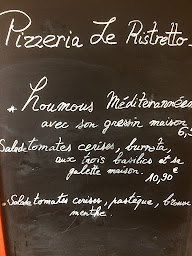 Pizzeria Le Ristretto
* Houmous Méditerannéen
avec son gressin maison
6,5
Salade tomates cerises, burrata,
aux trois basilics et sa
galette maison. 10,90 €
. Salade tomates cerises, pastèque,
menthe.